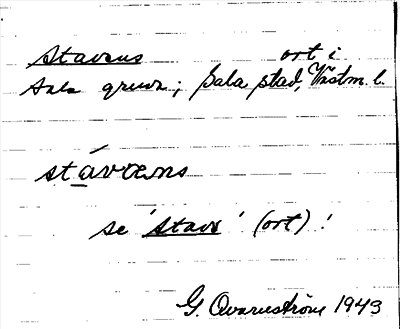 Stavens ort i
Sala gruva; Sala stad, Västm. l.
stávæns
se 'stavs' (ort)!
G. Qvarnström 1943